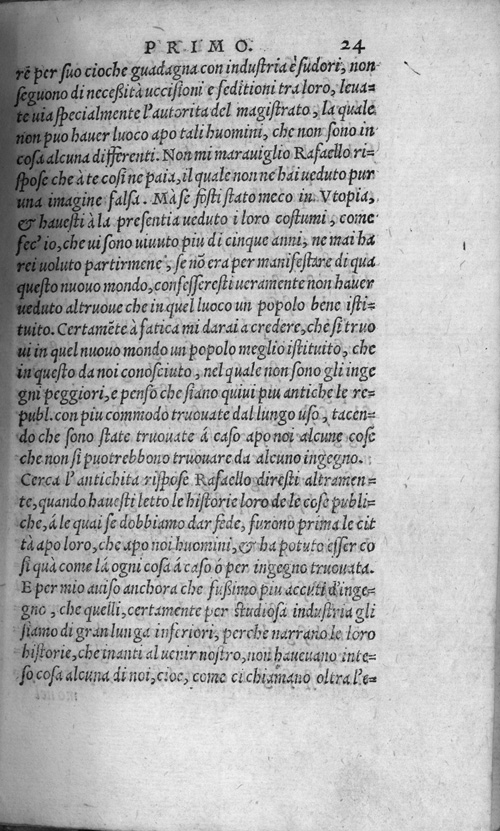 PRIMO. 24
rẽ per suo cioche guadagna con industria è sudori, non
seguono di neceßità uccisioni e seditioni tra loro, leua=
te uia specialmente l'autorita del magistrato, la quale
non puo hauer luoco apo tali huomini, che non sono in
cosa alcuna differenti. Non mi marauiglio Rafaello ri=
spose che à te cosi ne paia, il quale non ne hai ueduto pur
una imagine falsa. Mà se fosti stato meco in Vtopia,
& hauesti à la presentia ueduto i loro costumi, come
fec' io, che ui sono uiuuto piu di cinque anni, ne mai ha
rei uoluto partirmene, se nõ era per manifestare di qua
questo nuouo mondo, confesseresti ueramente non hauer
ueduto altruoue che in quel luoco un popolo bene isti=
tuito. Certamẽte à fatica mi darai a credere, che si truo
ui in quel nuouo mondo un popolo meglio istituito, che
in questo da noi conosciuto, nel quale non sono gli inge
gni peggiori, e penso che siano quiui piu antiche le re=
publ. con piu commodo truouate dal lungo uso, tacen=
do che sono state truouate á caso apo noi alcune cose
che non si puotrebbono truouare da alcuno ingegno.
Cerca l'antichita rispose Rafaello diresti altramen=
te, quando hauesti letto le historie loro de le cose publi=
che, á le quai se dobbiamo dar fede, furono prima le cit
tà apo loro, che apo noi huomini, & ha potuto esser co
si quà come lá ogni cosa á caso ò per ingegno truouata.
E per mio auiso anchora che fußimo piu accuti d'inge=
gno, che quelli, certamente per studiosa industria gli
siamo di gran lunga inferiori, perche narrano le loro
historie, che inanti al uenir nostro, non haueuano inte=
so cosa alcuna di noi, cioe, come ci chiamano oltra l'e=